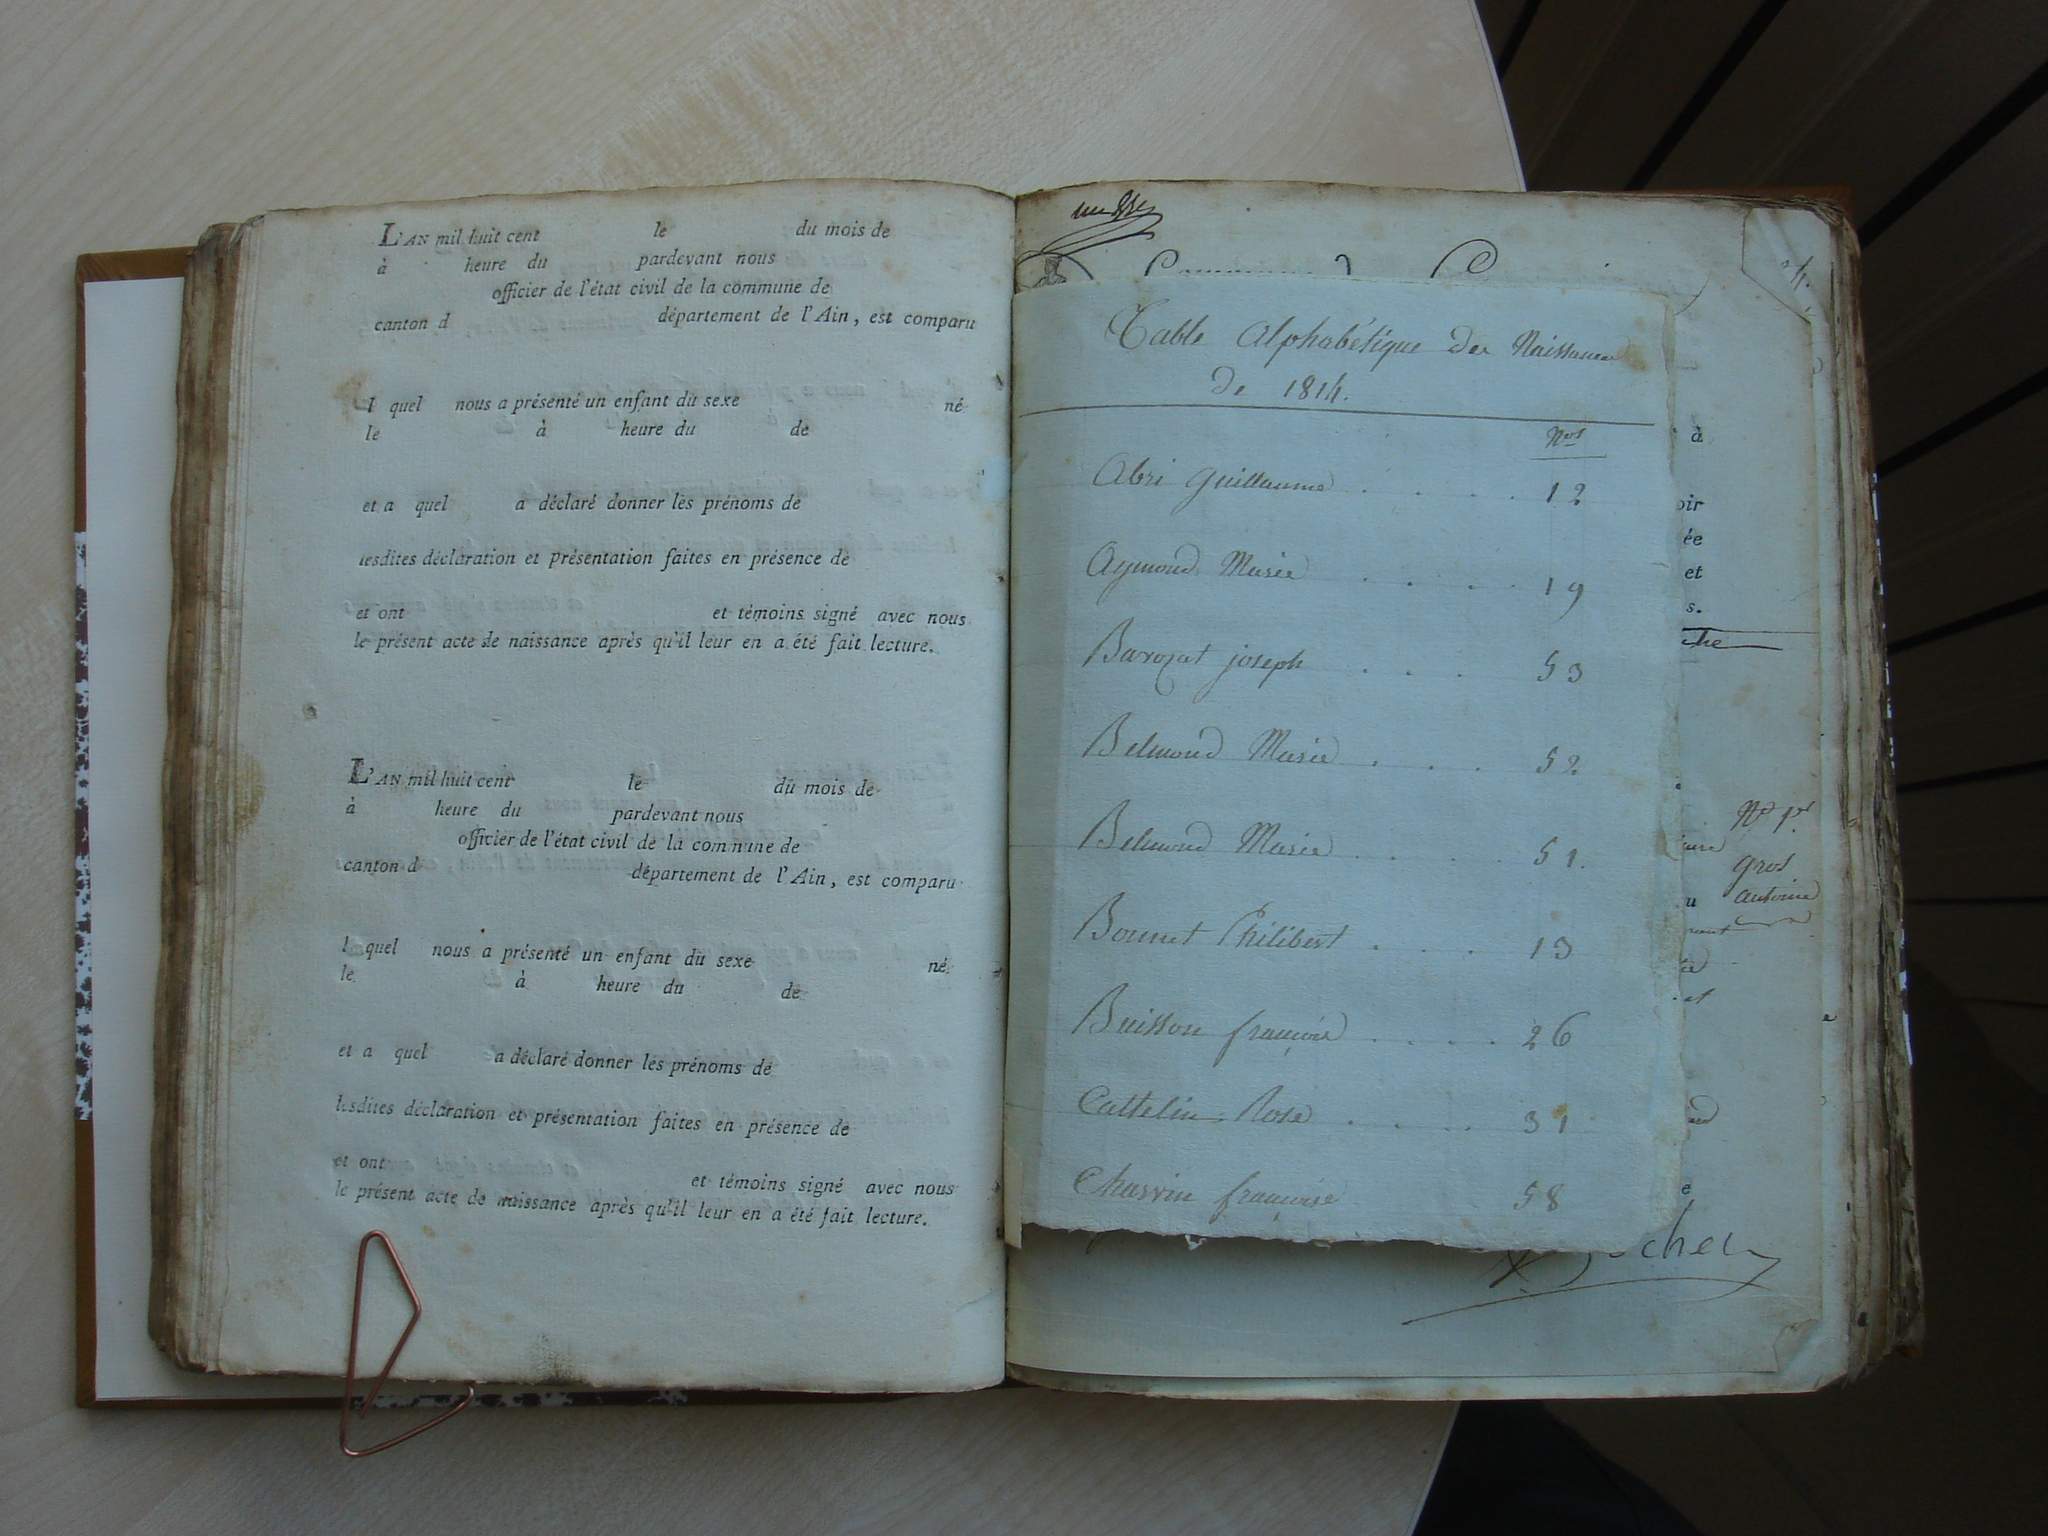 L'AN mil huit cent le du mois de
à heure du pardevant nous
officier de l'état civil de la commune de
canton d département de l'Ain, est comparu
l quel nous a présenté un enfant du sexe né
le à heure du de
et a quel a déclaré donner les prénoms de
lesdites déclaration et présentation faites en présence de
et ont et témoins signé avec nous
le présent acte de naissance après qu'il leur en a été fait lecture.
L'AN mil huit cent le du mois de
à heure du pardevant nous
officier de l'état civil de la commune de
canton d département de l'Ain, est comparu
l quel nous a présenté un enfant du sexe né
le à heure du de
et a quel a déclaré donner les prénoms de
lesdites déclaration et présentation faites en présence de
et ont et témoins signé avec nous
le présent acte de naissance après qu'il leur en a été fait lecture.
Table Alphabétique des Naissances
de 1814.
Nos
Abri Guillaume . . . . 12
Aymond Marie . . . . 19
Barozat joseph . . . 53
Belmond Marie . . . 52
Belmond Marie . . . . 51.
Bonnet Philibert . . . 13
Buisson françoise . . . . 26
Cattelin Rose . . . . 31
Charvin françoise 58
à
oir
ée
et
s.
che
No 1er
gros
antoine